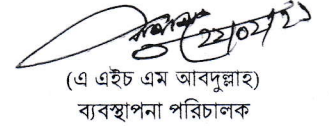 ২২/০২/২১
(এ এইচ এম আবদুল্লাহ)
ব্যবস্থাপনা পরিচালক